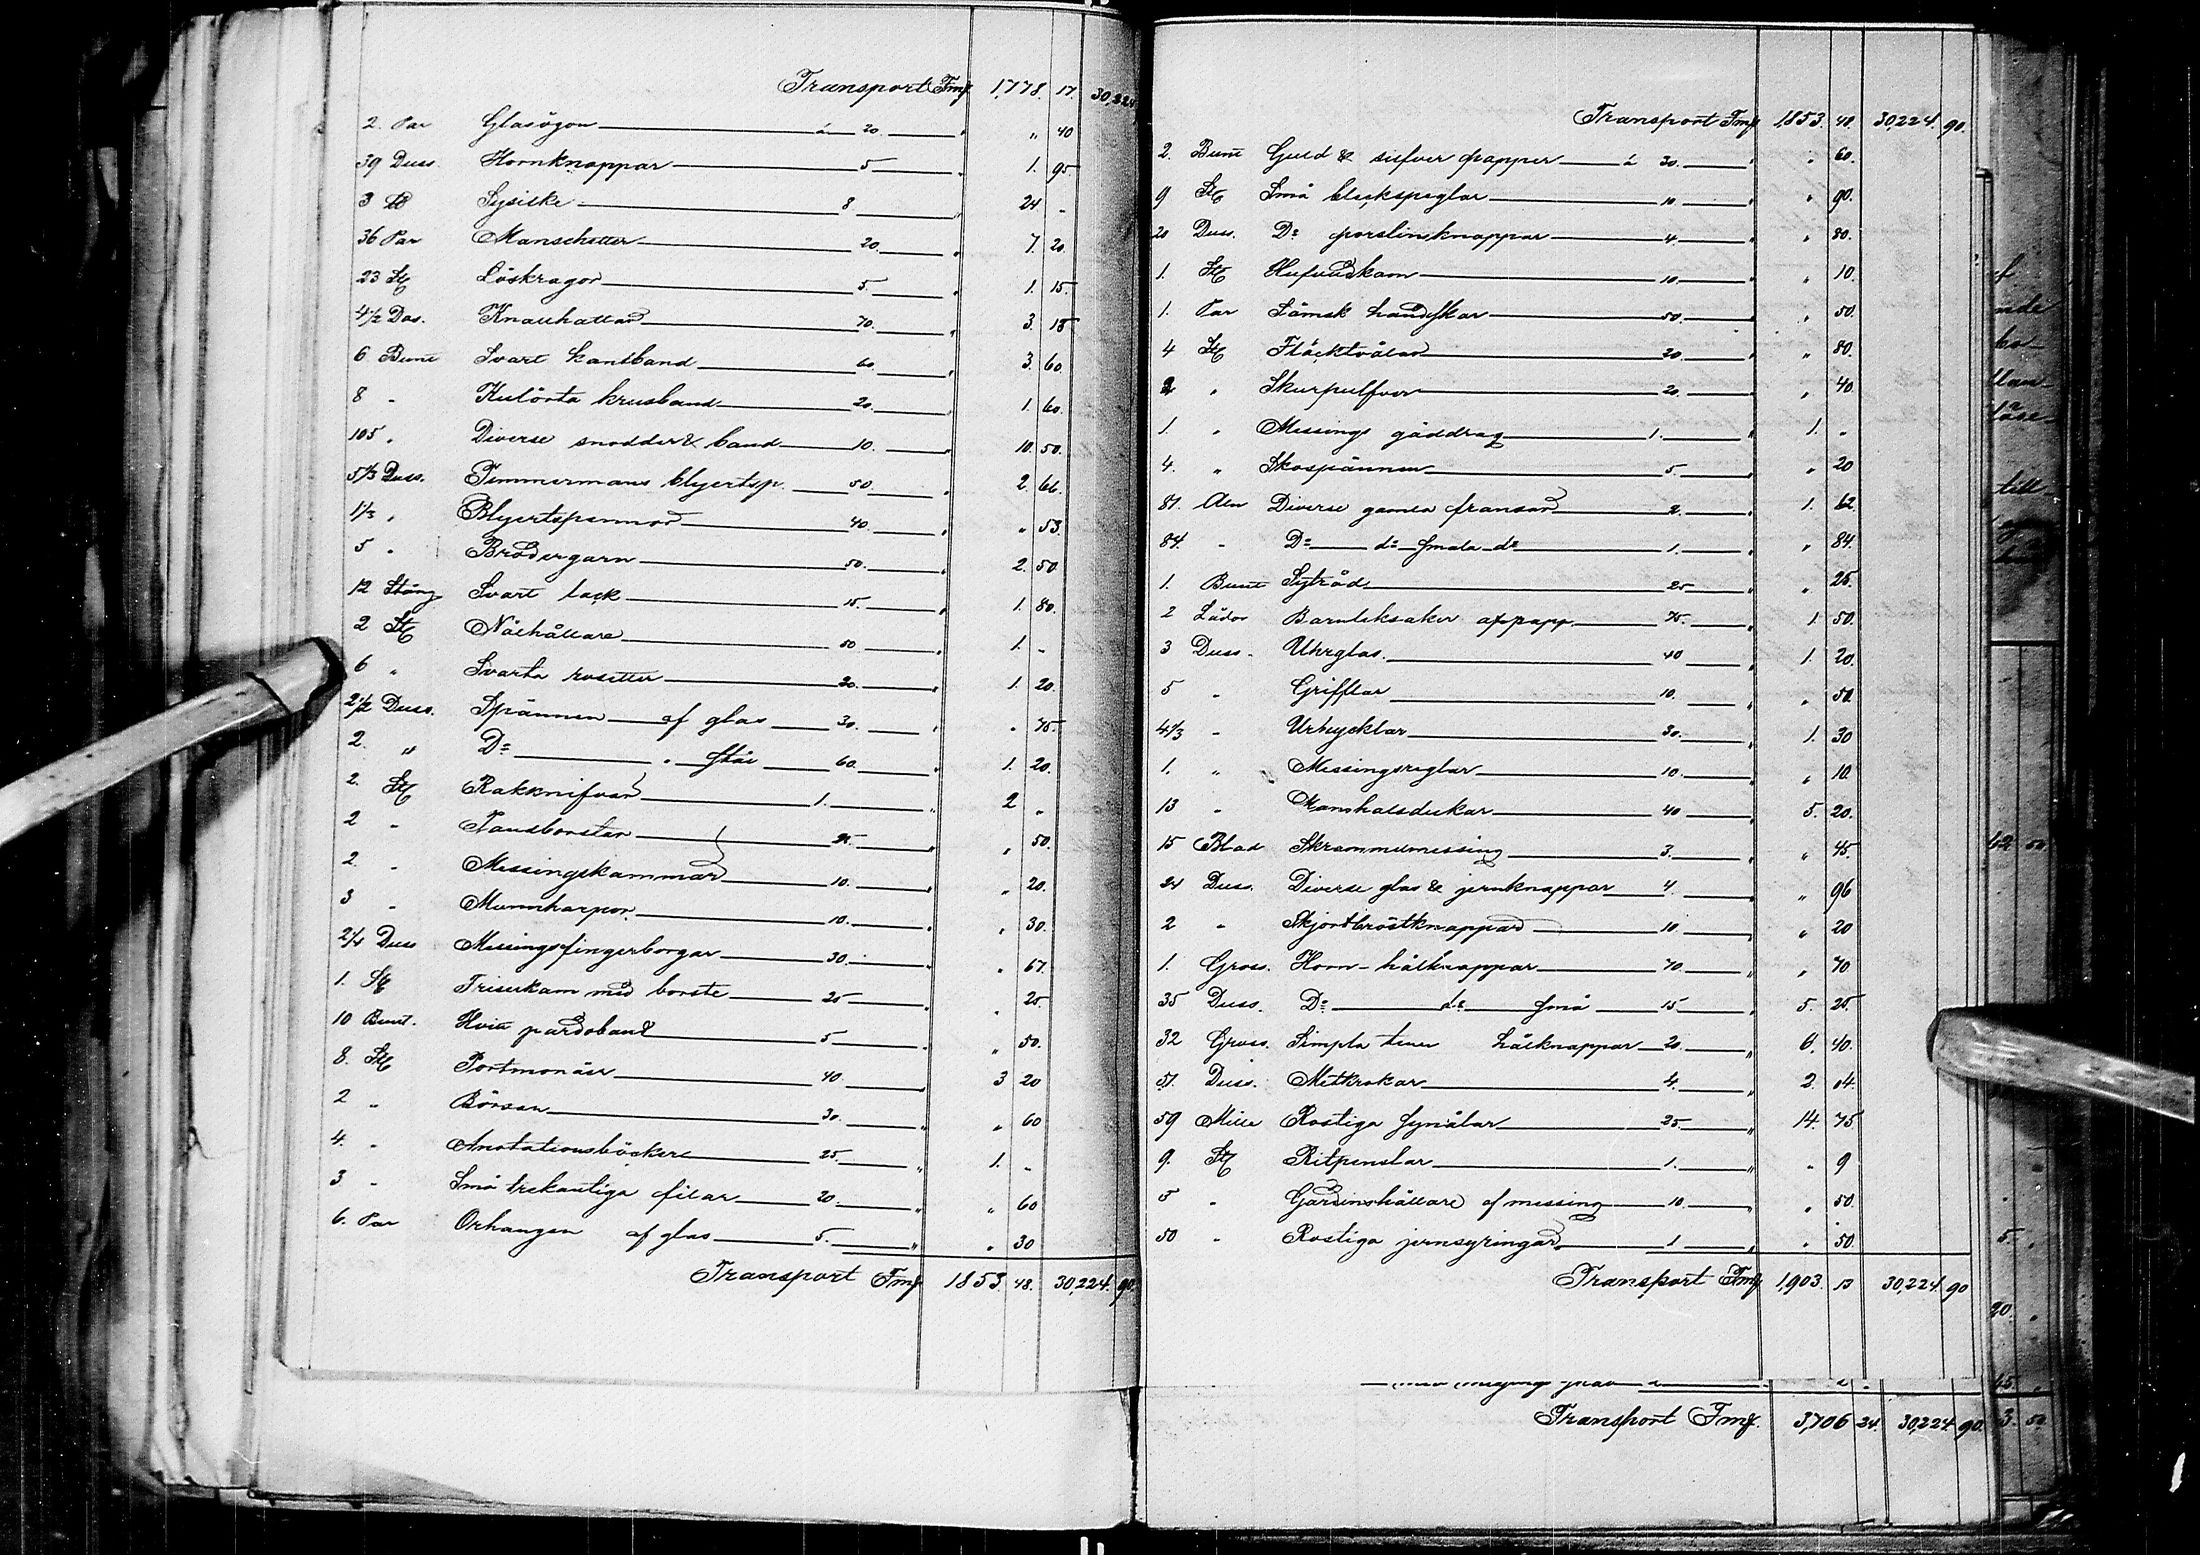 Transport Fmk 1,778. 17. 30,224
2. Par Glasögon à 20. " " 40
39 Duss. Hornknappar 5 " 1. 95
3 ℔ Sysilke 8 " 24 "
36 Par Manschetter 20. " 7. 20
23 St Löskragor 5. " 1. 15.
4 1/2 Dos. Knallhattar 70. " 3. 15
6 Bunt Svart kantband 60. " 3. 60.
8 " Kulörta krusband 20. " 1. 60.
105 " Diverse snodder & band 10. " 10. 50.
5 1/3 Duss. Timmermans blyertsp. 50. " 2. 66.
1 1/3 " Blyertspennor 40. " " 53.
5 " Brodergarn 50. " 2. 50.
12 Stång Svart lack 15. " 1. 80.
2 St Nålhållare 50 " 1. "
6 " Svarta rosetter 20. " 1. 20.
2 1/2 Duss. Spännen af glas 30. " " 75.
2. " D:o " stål 60. " 1. 20.
2. St Rakknifvar 1. " 2 "
2 " Tandborstar 25. " " 50.
2. " Messingskammar 10. " " 20.
3 " Munharpor 10. " " 30.
2 1/4 Duss Messingsfingerborgar 30. " " 67.
1. St Friserkam med borste 25 " " 25.
10 Bunt. Hvitt pardoband 5 " " 50.
8. St Portmonäer 40. " 3 20
2 " Börsar 30. " " 60
4. " Anotationsböcker 25. " 1. "
3 " Små trekantiga filar 20. " " 60
6. Par Örhängen af glas 5. " " 30
Transport Fmk 1853. 48. 30,224. 90.
Transport Fmk 1,853. 48. 30,224. 90.
2. Bunt Guld & silfver papper à 30. " " 60.
9 St Små bleckspeglar 10. " " 90.
20 Duss. D:o porslinsknappar 4. " " 80.
1. St Hufvudkam 10. " " 10.
1. Par Sämsk handskar 50. " " 50.
4 St Fläcktvålar 20. " " 80.
2 " Skurpulfver 20. " " 40.
1 " Messings gäddrag 1. " 1. "
4. " Skospännen 5. " " 20
81. Aln Diverse gamla fransar 2. " 1. 62
84. " D:o d:o smala d:o 1. " " 84.
1. Bunt Sytråd 25 " " 25.
2 Lådor Barnleksaker af papp 75. " 1. 50.
3 Duss. Uhrglas. 40 " 1. 20.
5 " Grifflar 10. " " 50.
4 1/3 " Urnycklar 30. " 1. 30
1. " Messingsreglar 10. " " 10.
13 " Manshalsdukar 40 " 5. 20.
15 Blad Skrammelmessing 3. " " 45.
24 Duss. Diverse glas & jernknappar 4. " " 96
2 " Skjortbröstknappar 10. " " 20
1. Gross. Horn-hålknappar 70 " " 70
35 Duss. D:o d:o små 15 " 5. 25.
32 Gross. Simpla tenn hålknappar 20. " 6. 40.
51. Duss. Metkrokar 4. " 2. 04.
59 Mille Rostiga synålar 25. " 14. 75.
9. St Ritpenslar 1. " " 9
5 " Gardinshållare af messing 10. " " 50.
50 " Rostiga jernsyringar 1 " " 50.
Transport Fmk 1,903. 13 30,224. 90
Transport Fmk. 3,706 24. 30,224. 90.